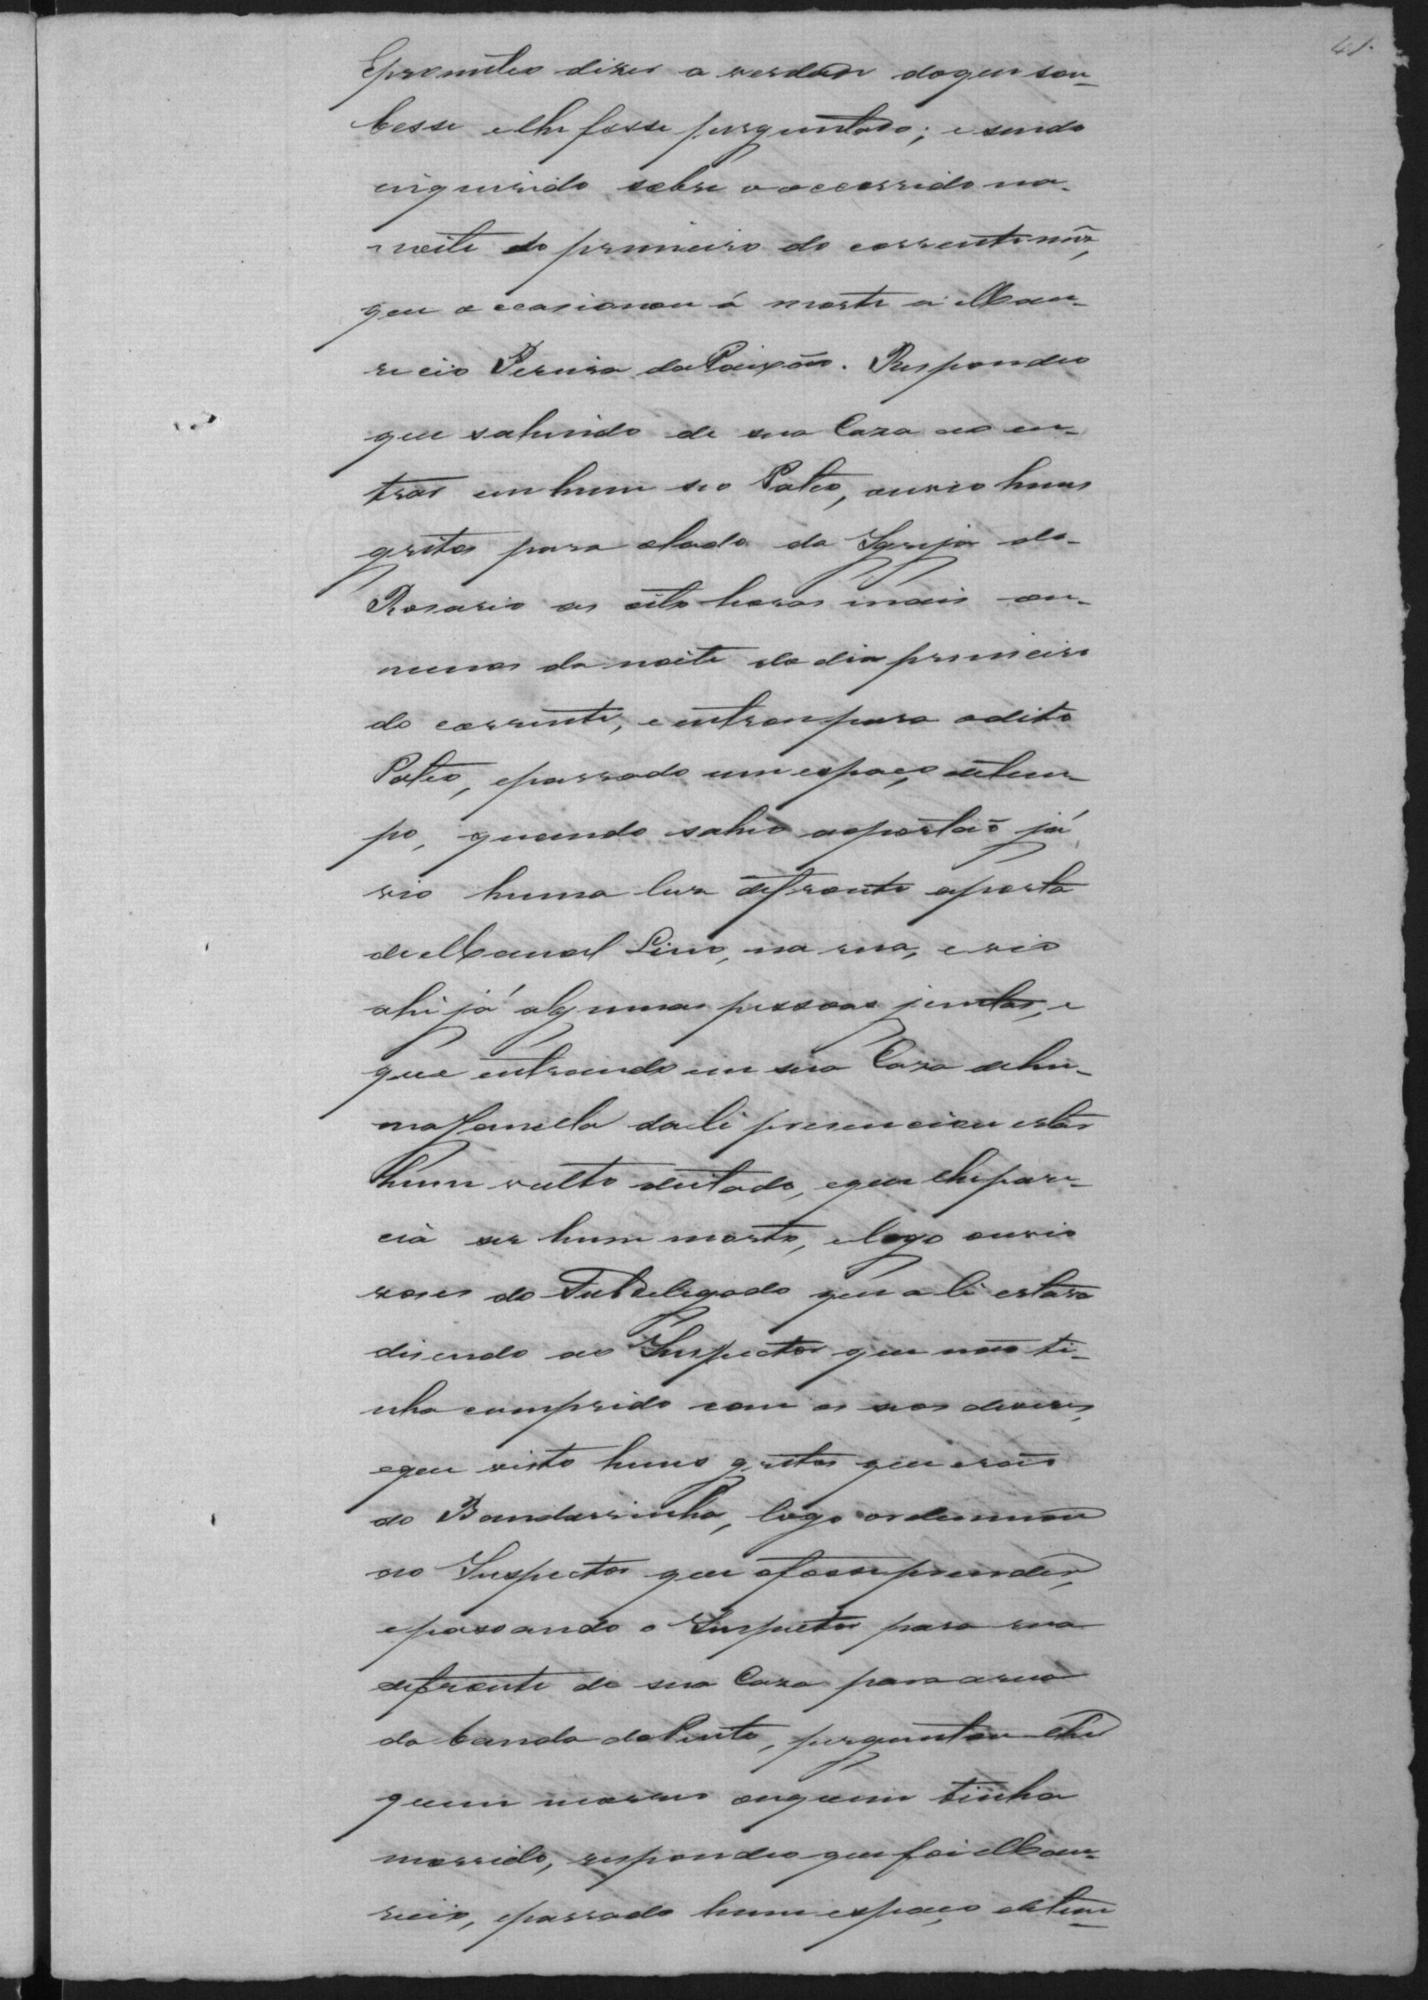 41.
Eprometeo dizer a verdade doque sou-
besse elhe fosse perguntado; e sendo
inquirido sobre o occorrido na
noite do primeiro do corrente mêz,
que occasionou á morte a Mau-
ricio Pereira da Paixão. Respondeo
que sahindo de sua Caza ao en-
trar em hum seo Pateo, ouvio huns
gritos para olado da Igreja do
Rosario as oito horas mais ou
menos da noite do dia primeiro
do corrente, e entrou para odito
Pateo, epassado um espaço detem-
po, quando sahio aoportaõ já
vio huma luz defronte aporta
de Manoel Lino, na rua, e vio
ahi já algumas pessoas juntas, e
que entrando em sua Caza dehu-
ma Janella dali presenciou estar
hum vulto deitado, eque lhe pare-
cia ser hum morto, elogo ouvio
vozes do Subdelegado que ali estava
disendo ao Inspector que não ti-
nha comprido com os seos deveres,
eque visto huns gritos que eraõ
do Bandarrinha, logo ordenou
ao Inspector que ofosse prender,
epassando o Inspector para rua
defronte de sua Caza para arua
da banda do Pinto, perguntou lhe
quem morreo ouquem tinha
morrido, respondeo que foi Mau-
ricio, epassado hum espaço detem-